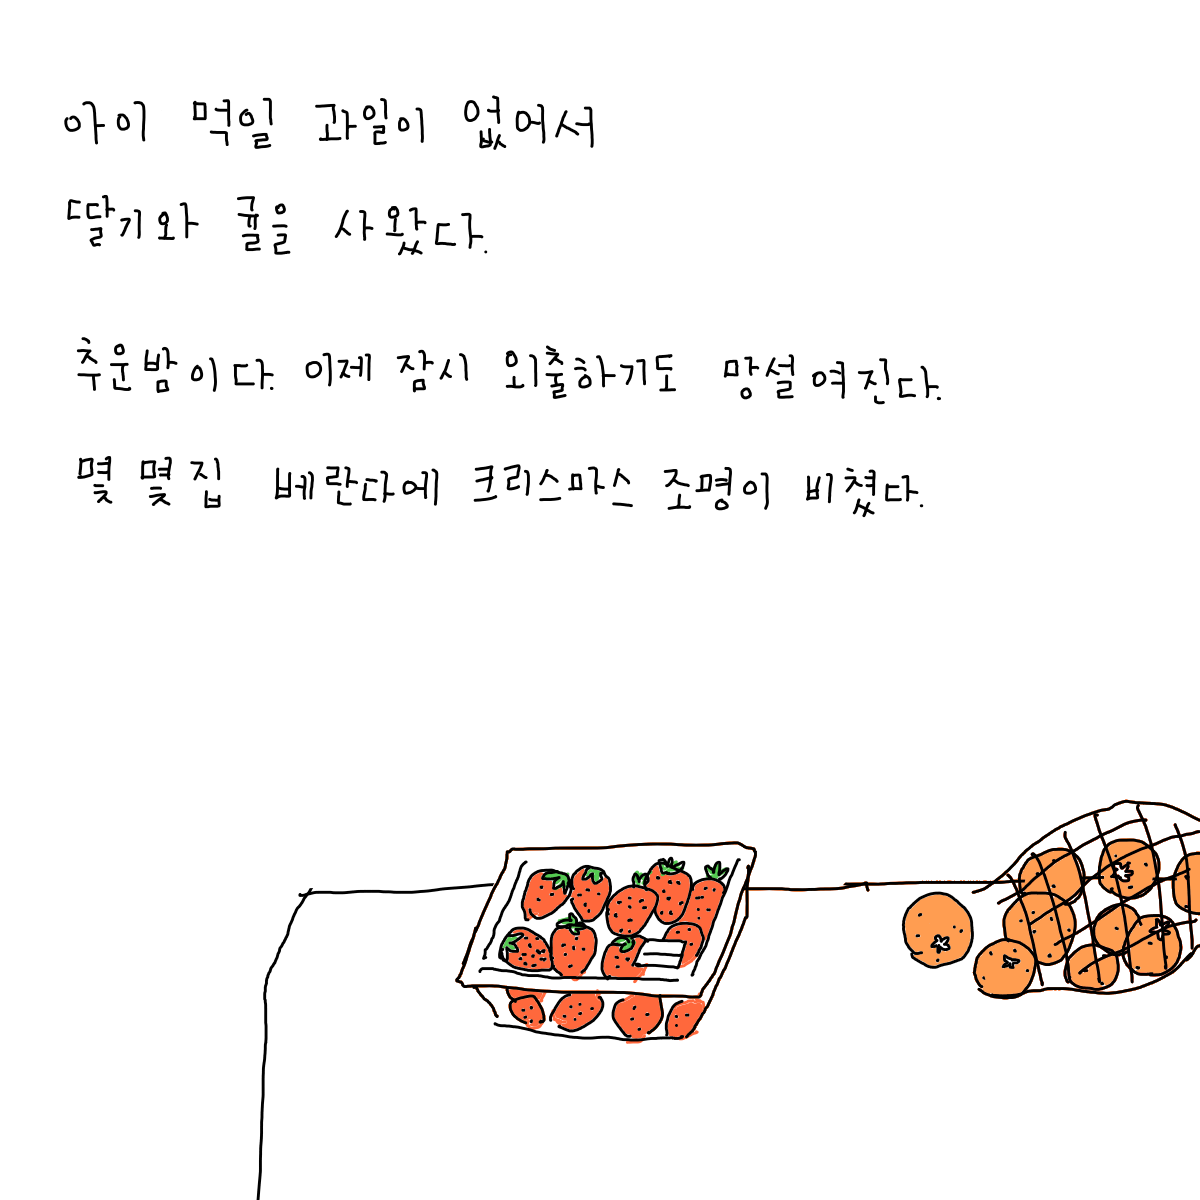 아이 먹일 과일이 없어서
딸기와 귤을 사왔다.
추운밤이다. 이제 잠시 외출하기도 망설여진다.
몇몇집 베란다에 크리스마스 조명이 비쳤다.